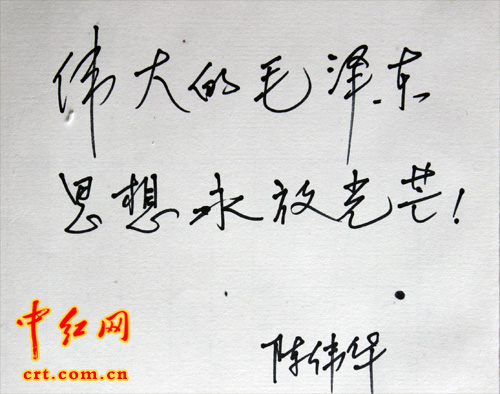 伟大的毛泽东
思想永放光芒！
陈伟华
中红网
crt.com.cn